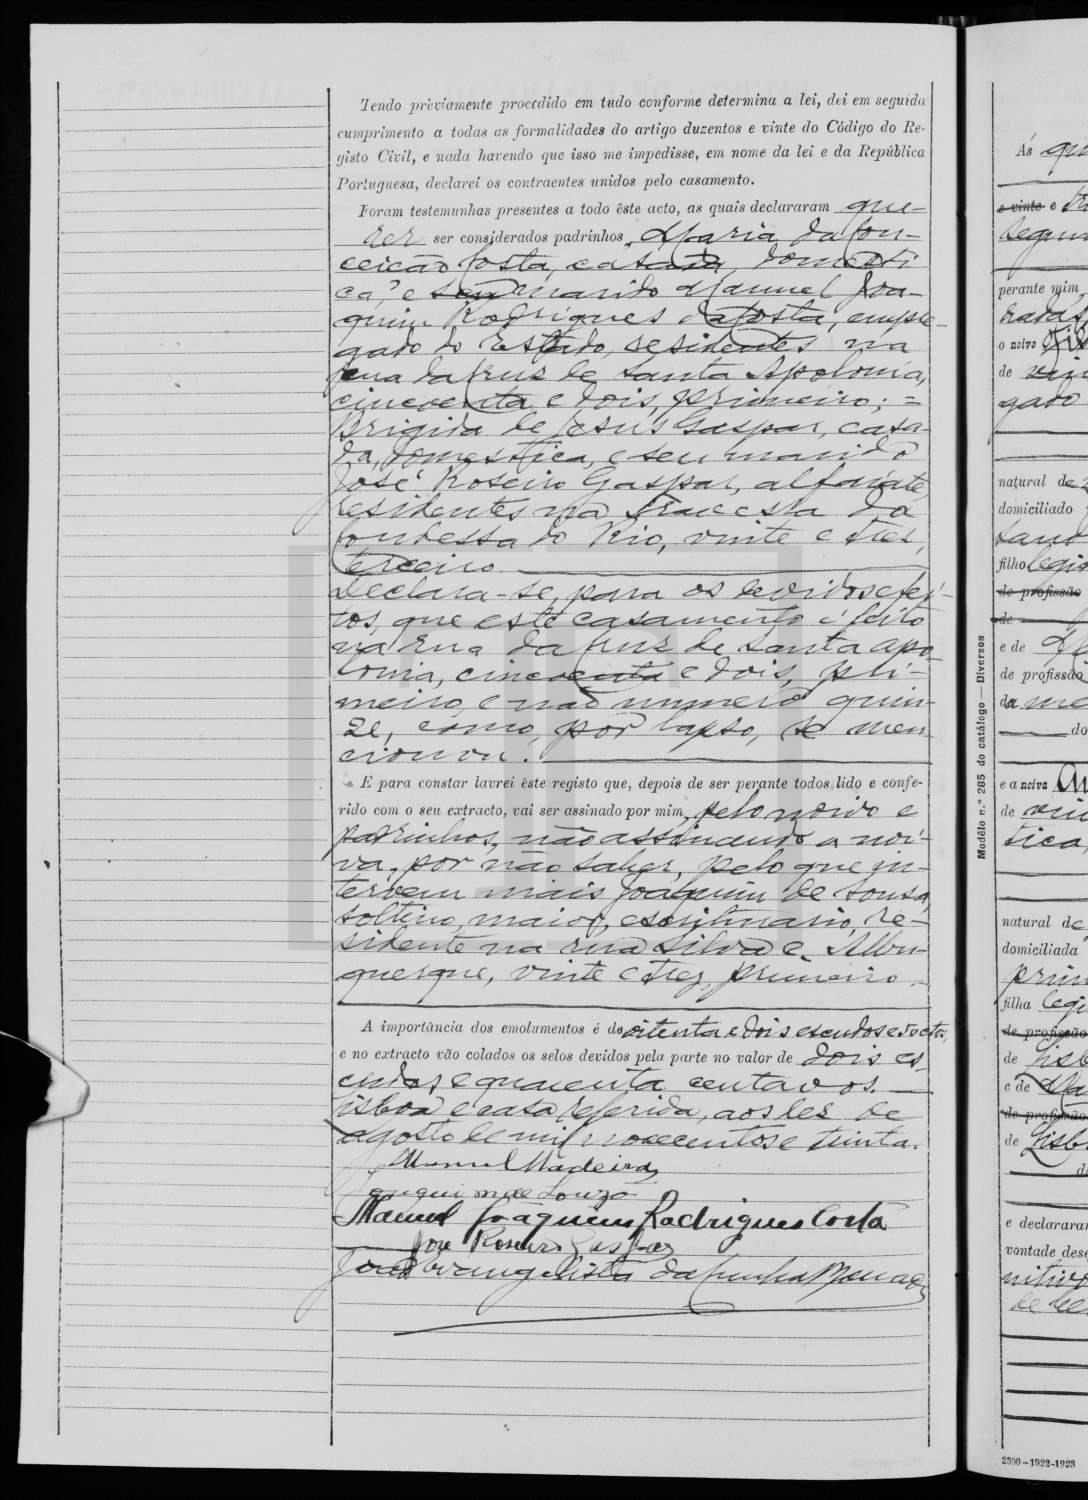 Tendo préviamente procedido em tudo conforme determina a lei, dei em seguida
cumprimento a todas as formalidades do artigo duzentos e vinte do Código do Re-
gisto Civil, e nada havendo que isso me impedisse, em nome da lei e da República
Portuguesa, declarei os contraentes unidos pelo casamento.
Foram testemunhas presentes a todo êste acto, as quais declararam que-
rer ser considerados padrinhos, Maria da Con-
ceição Costa, casada, domesti
ca, e seu marido Manuel Joa-
quim Rodrigues da Costa, empre-
gado do Estado, residentes na
rua da Cruz de Santa Apolonia,
cincoenta e dois, primeiro; =
Brigida de Jesus Gaspar, casa-
da, domestica, e seu marido
José Roseiro Gaspar, alfaiate
residentes na Travessa da
Condessa do Rio, vinte e tres,
terceiro.
Declara-se, para os devidos efei-
tos, que este casamento é feito
na rua da Cruz de Santa Apo-
lonia, cincoenta e dois, pri-
meiro, e não numero quin-
ze, como, por lapso, se men
cionou.
E para constar lavrei êste registo que, depois de ser perante todos lido e confe-
rido com o seu extracto, vai ser assinado por mim, pelo noivo e
padrinhos, não assinando a noi-
va, por não saber, pelo que in-
tervem mais Joaquim de Sousa,
solteiro, maior, escriturario, re-
sidente na rua Silva e Albu-
querque, vinte e trez, primeiro.
A importância dos emolumentos é de oitenta e dois escudos e
e no extracto vão colados os selos devidos pela parte no valor de dois es
cudos, e quarenta centavos.
Lisboa e casa referida, aos dez de
agosto de mil novecentos e trinta.
Manuel Madeira
Joaquim de Souza
Manuel Joaquim Rodrigues Costa
José Roseiro Gaspar
João Evangelista da Cunha
Às
e vinte e
segun
perante mim
o noivo
de
gado
natural de
domiciliado
filho legi
de profissão
de
e de
de profissão
da
do
e a noiva
de vin
tica,
natural de
domiciliada
prim
filha legi
de profissão
de Lisb
e de Ma
de profissão
de Lisb
d
e declararam
vontade dese
nitivo
Modêlo n.º 285 do catálogo — Diversos
2300—1922-1923